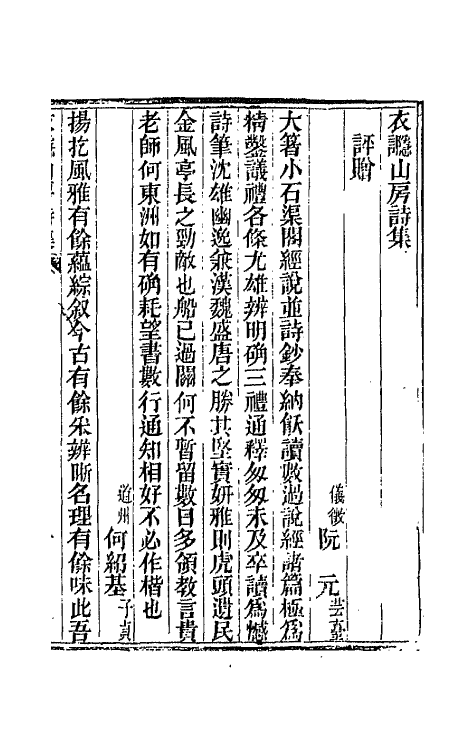 衣讔山房詩集
評贈
儀徵阮元芸臺
大箸小石渠閣經說並詩鈔奉納飫讀數過說經諸篇極爲
精鑿議禮各條尤雄辨明确三禮通釋匆匆未及卒讀爲憾
詩筆沈雄幽逸兼漢魏盛唐之勝其堅實妍雅則虎頭遺民
金風亭長之勁敵也船已過關何不暫留數日多領敎言貴
老師何東洲如有确耗望書數行通知相好不必作楷也
道州何紹基子貞
揚扢風雅有餘蘊綜叙今古有餘采辨晰名理有餘味此吾